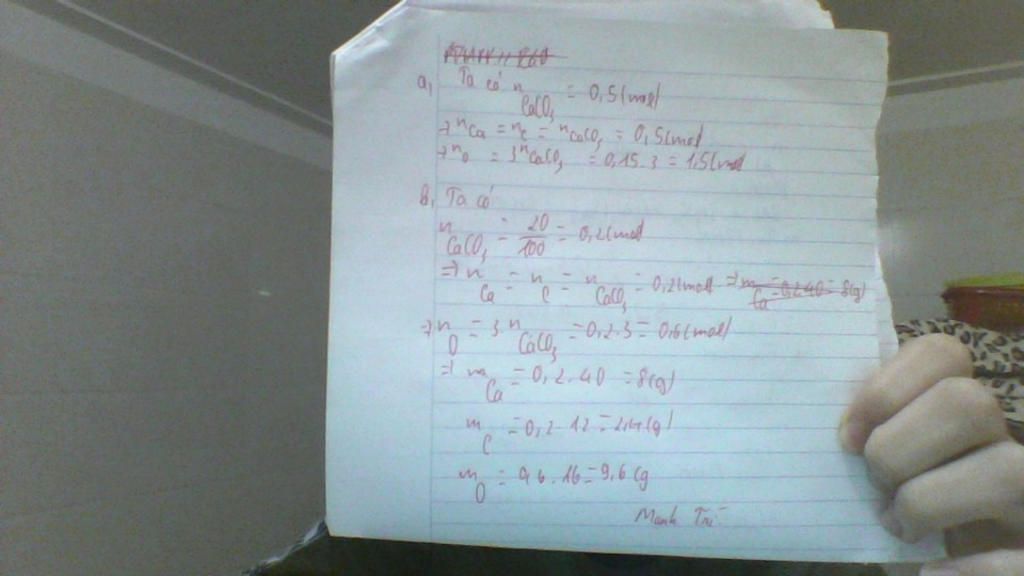 a, Ta có n CaCO3 = 0,5(mol)
=> nCa = nC = nCaCO3 = 0,5(mol)
=> nO = 3nCaCO3 = 0,15.3 = 1,5(mol)
b, Ta có
n CaCO3 = 20/100 = 0,2(mol)
=> n Ca = n C = n CaCO3 = 0,2(mol) => m Ca = 0,2.40 = 8(g)
=> n O = 3 n CaCO3 = 0,2.3 = 0,6(mol)
=> m Ca = 0,2.40 = 8(g)
m C = 0,2.12 = 2,4(g)
m O = 0,6.16 = 9,6(g
Manh Trí